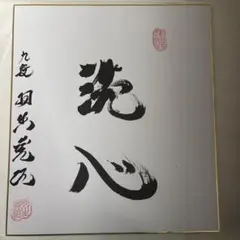 洗心
九段 羽生善治